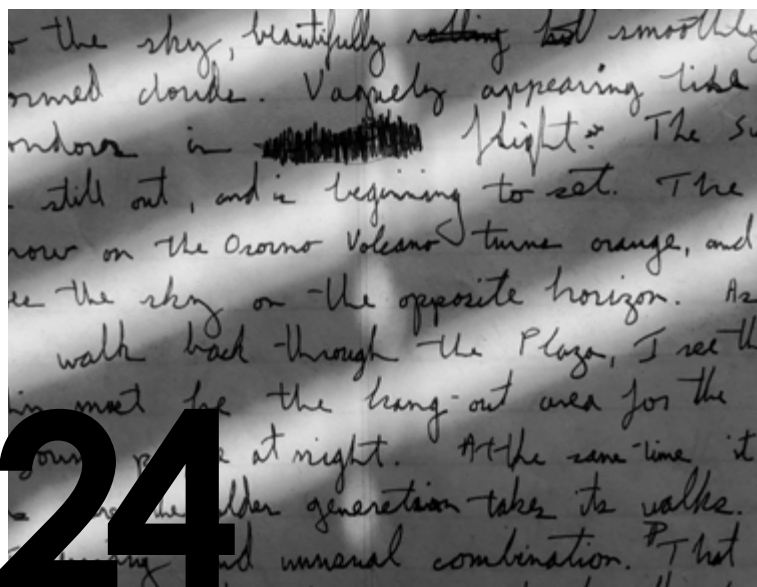 the sky, beautifully rolling but smoothly
ormed clouds. Vaguely appearing like
ondors in flight. The Su
still out, and is beginning to set. The
now on the Osorno Volcano turns orange, and
ee the sky on the opposite horizon. As
walk back through the Plaza, I see th
must be the hang-out area for the
young at night. At the same time it
the older generation takes its walks.
and unusual combination. That
24